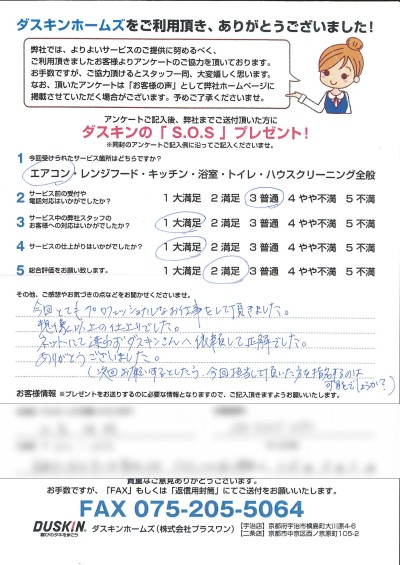 ダスキンホームズをご利用頂き、ありがとうございました!
弊社では、よりよいサービスのご提供に努めるべく、
ご利用頂きましたお客様よりアンケートのご協力を頂いております。
お手数ですが、ご協力頂けるとスタッフ一同、大変嬉しく思います。
なお、頂いたアンケートは「お客様の声」として弊社ホームページに
掲載させていただく場合がございます。予めご了承くださいませ。
アンケートご記入後、弊社までご送付頂いた方に
ダスキンの「S.O.S」プレゼント!
※同封のアンケートご記入例に沿ってご記入くださいませ。
1 今回受けられたサービス箇所はどちらですか?
エアコン・レンジフード・キッチン・浴室・トイレ・ハウスクリーニング全般
2 サービス前の受付や電話対応はいかがでしたか? 1 大満足 2 満足 3 普通 4 やや不満 5 不満
3 サービス中の弊社スタッフのお客様への対応はいかがでしたか? 1 大満足 2 満足 3 普通 4 やや不満 5 不満
4 サービスの仕上がりはいかがでしたか? 1 大満足 2 満足 3 普通 4 やや不満 5 不満
5 総合評価をお願い致します。 1 大満足 2 満足 3 普通 4 やや不満 5 不満
その他、ご感想やお気づきの点などをお聞かせくださいませ。
今回とてもプロフェッショナルなお仕事をして頂きました。
想像以上の仕上りでした。
ネットにて迷わずダスキンさんへ依頼して正解でした。
ありがとうございました。
(次回お願いするとしたら、今回担当して頂いた方を指名するのは
可能でしょうか?)
お客様情報 ※プレゼントをお送りするのに必要な情報となりますので、ご記入頂きますようお願いいたします。
貴重なご意見ありがとうございます。
お手数ですが、「FAX」もしくは「返信用封筒」にてご送付をお願いいたします。
FAX 075-205-5064
DUSKIN 喜びのタネをまこう ダスキンホームズ(株式会社プラスワン)
【宇治店】京都府宇治市槇島町大川原4-6
【二条店】京都市中京区西ノ京原町105-2